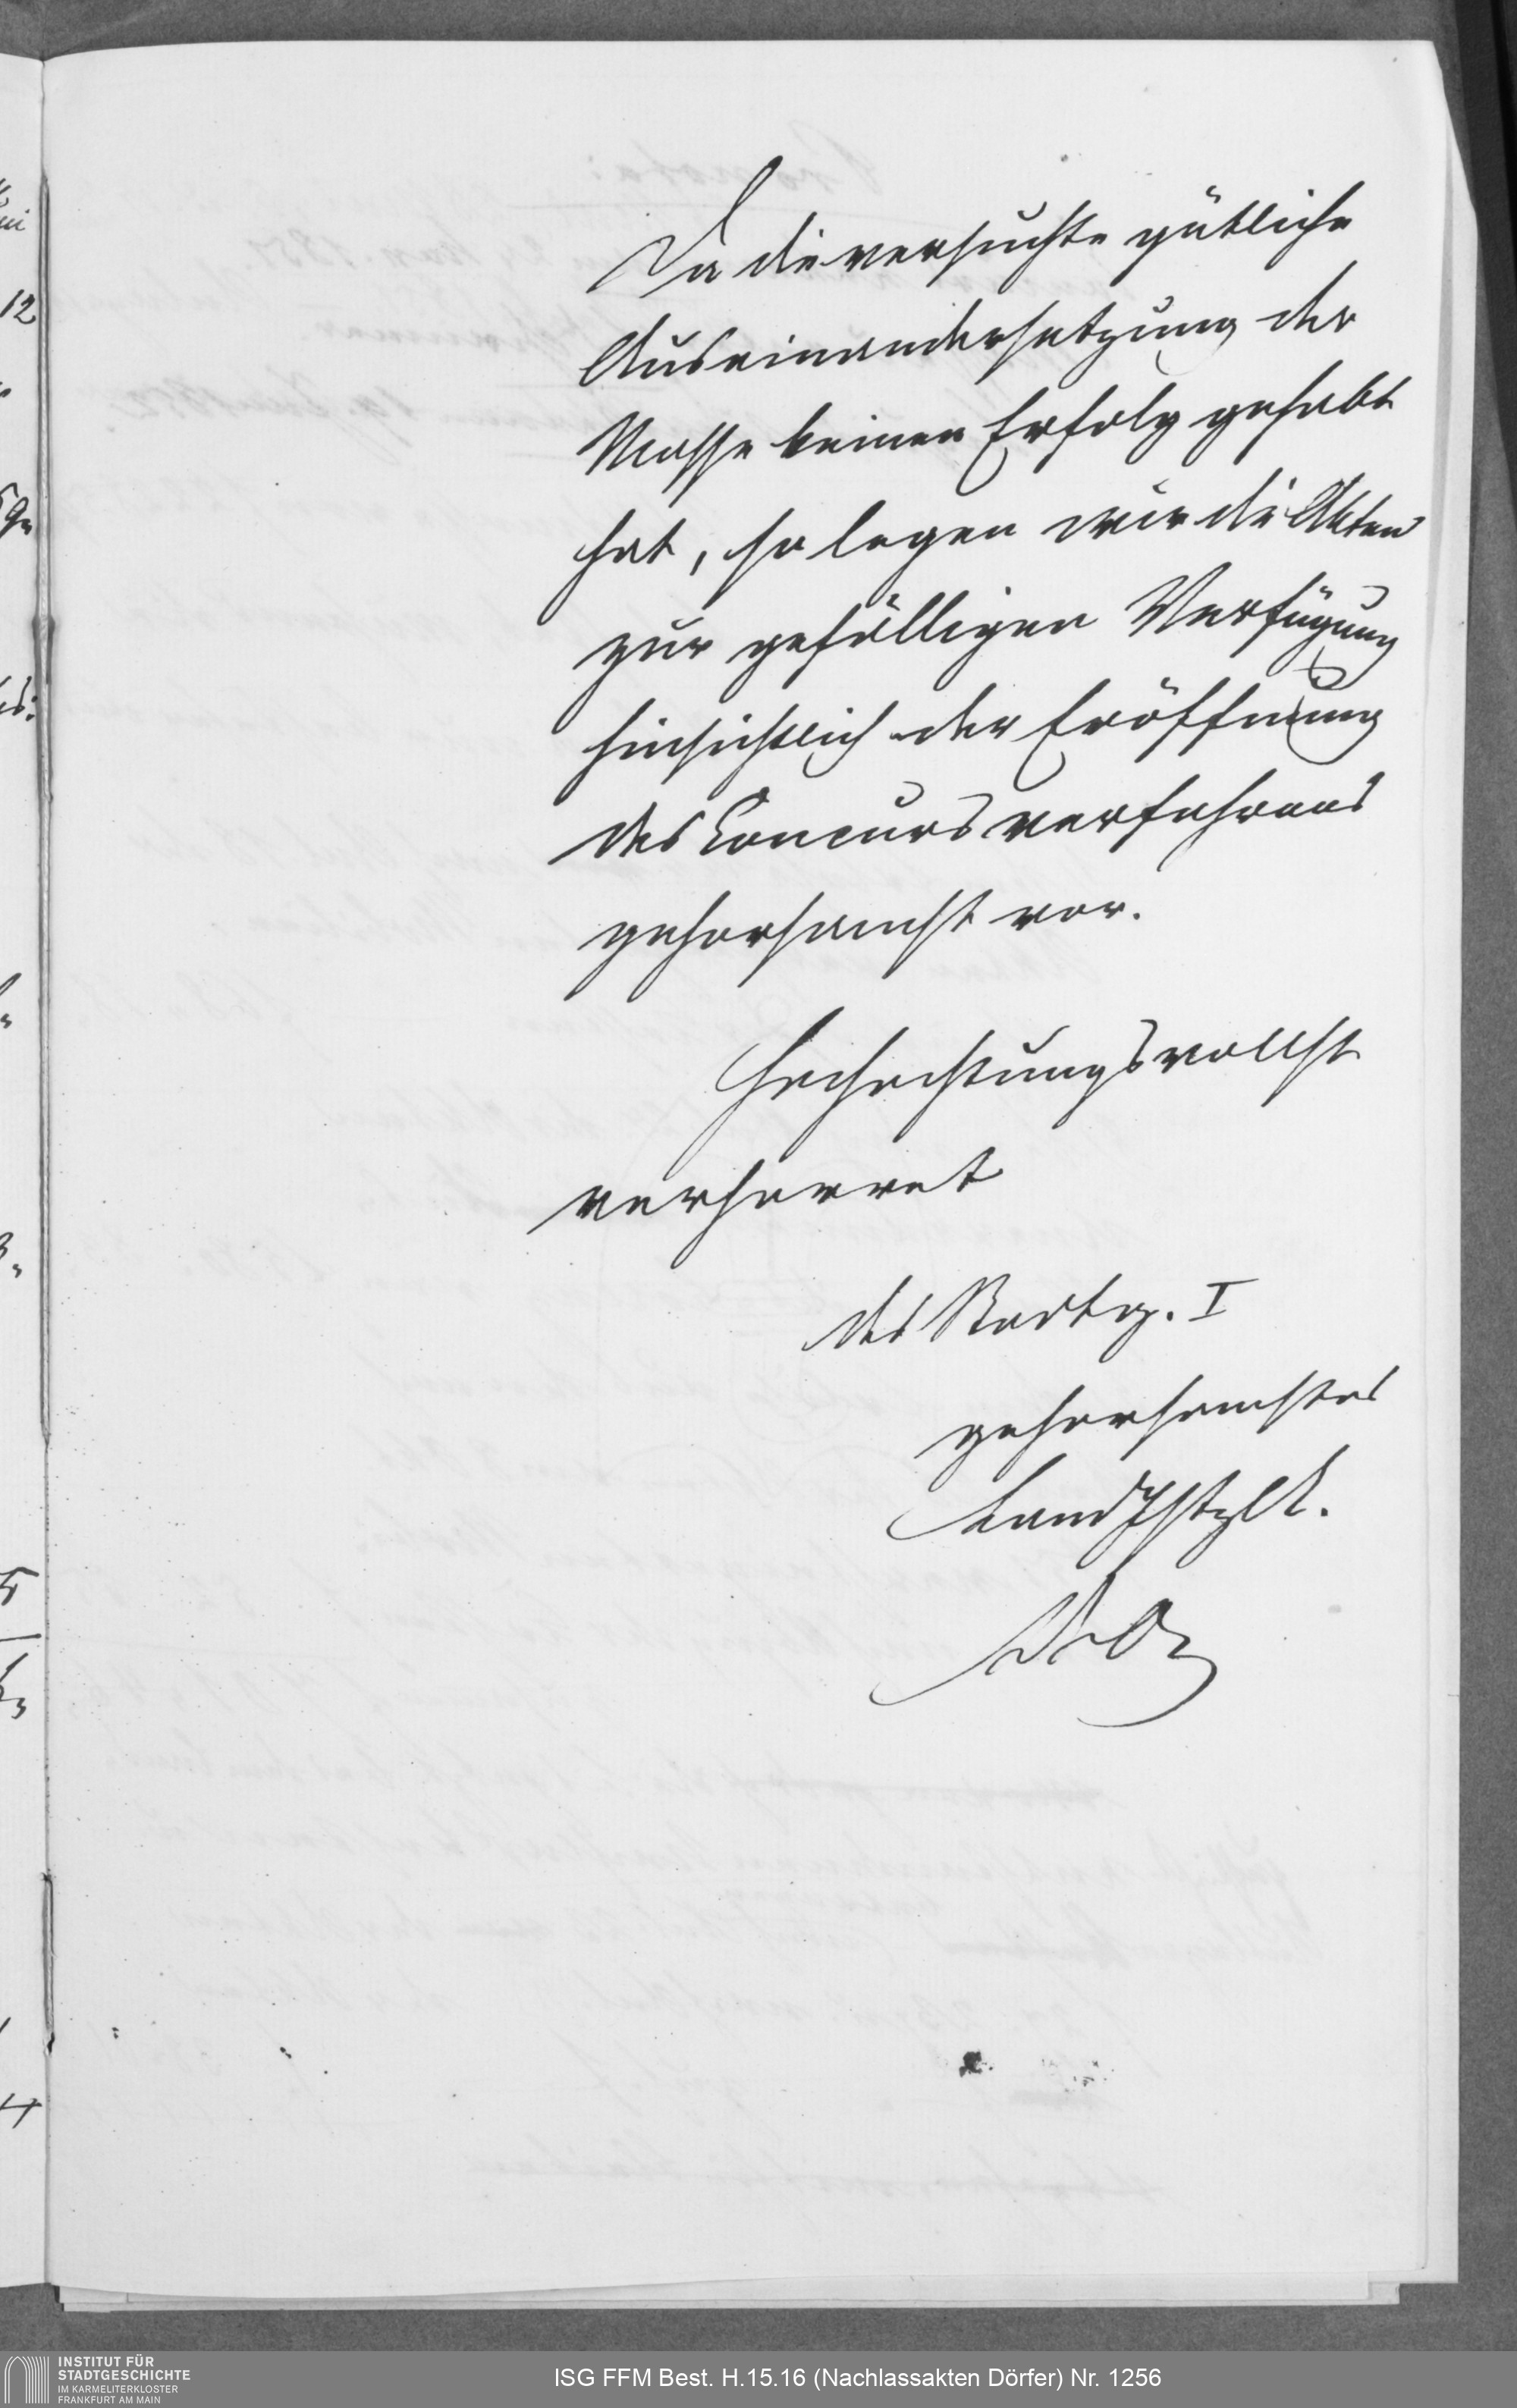 Da die versuchte gütliche
Auseinandersetzung der
Masse keinen Erfolg gehabt
hat, so legen wir die Akten
zur gefälligen Verfügung
hinsichtlich der Eröffnung
des Concursverfahrens
gehorsamst vor.
Hochachtungsvollst
verharret
des Stadtg. I
gehorsamstes
Land
12
INSTITUT FÜR
STADTGESCHICHTE
IM KARMELITERKLOSTER
FRANKFURT AM MAIN
ISG FFM Best. H.15.16 (Nachlassakten Dörfer) Nr. 1256